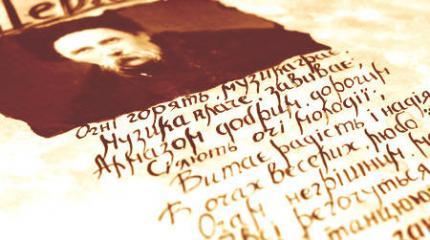 Огні горять, музика грає,
Музика плаче, завиває;
Алмазом добрим, дорогим
Сіяють очі молодії;
Витає радість і надія
В очах веселих; любо
Очам негрішним,
всі регочуться
танцюють